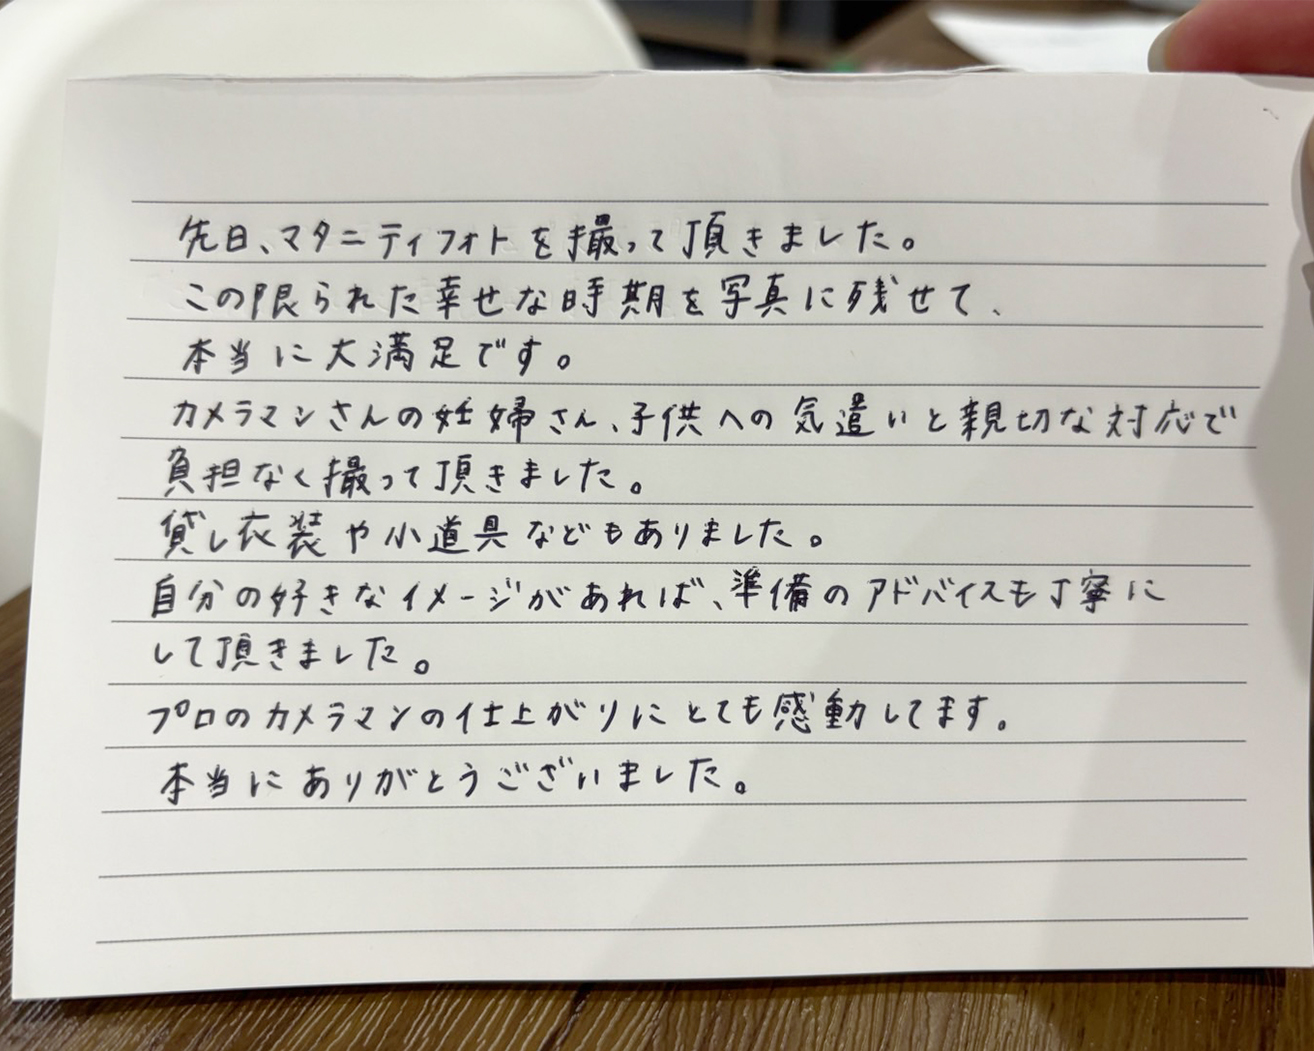 先日、マタニティフォトを撮って頂きました。
この限られた幸せな時期を写真に残せて、
本当に大満足です。
カメラマンさんの妊婦さん、子供への気遣いと親切な対応で
負担なく撮って頂きました。
貸し衣装や小道具などもありました。
自分の好きなイメージがあれば、準備のアドバイスも丁寧に
して頂きました。
プロのカメラマンの仕上がりにとても感動してます。
本当にありがとうございました。